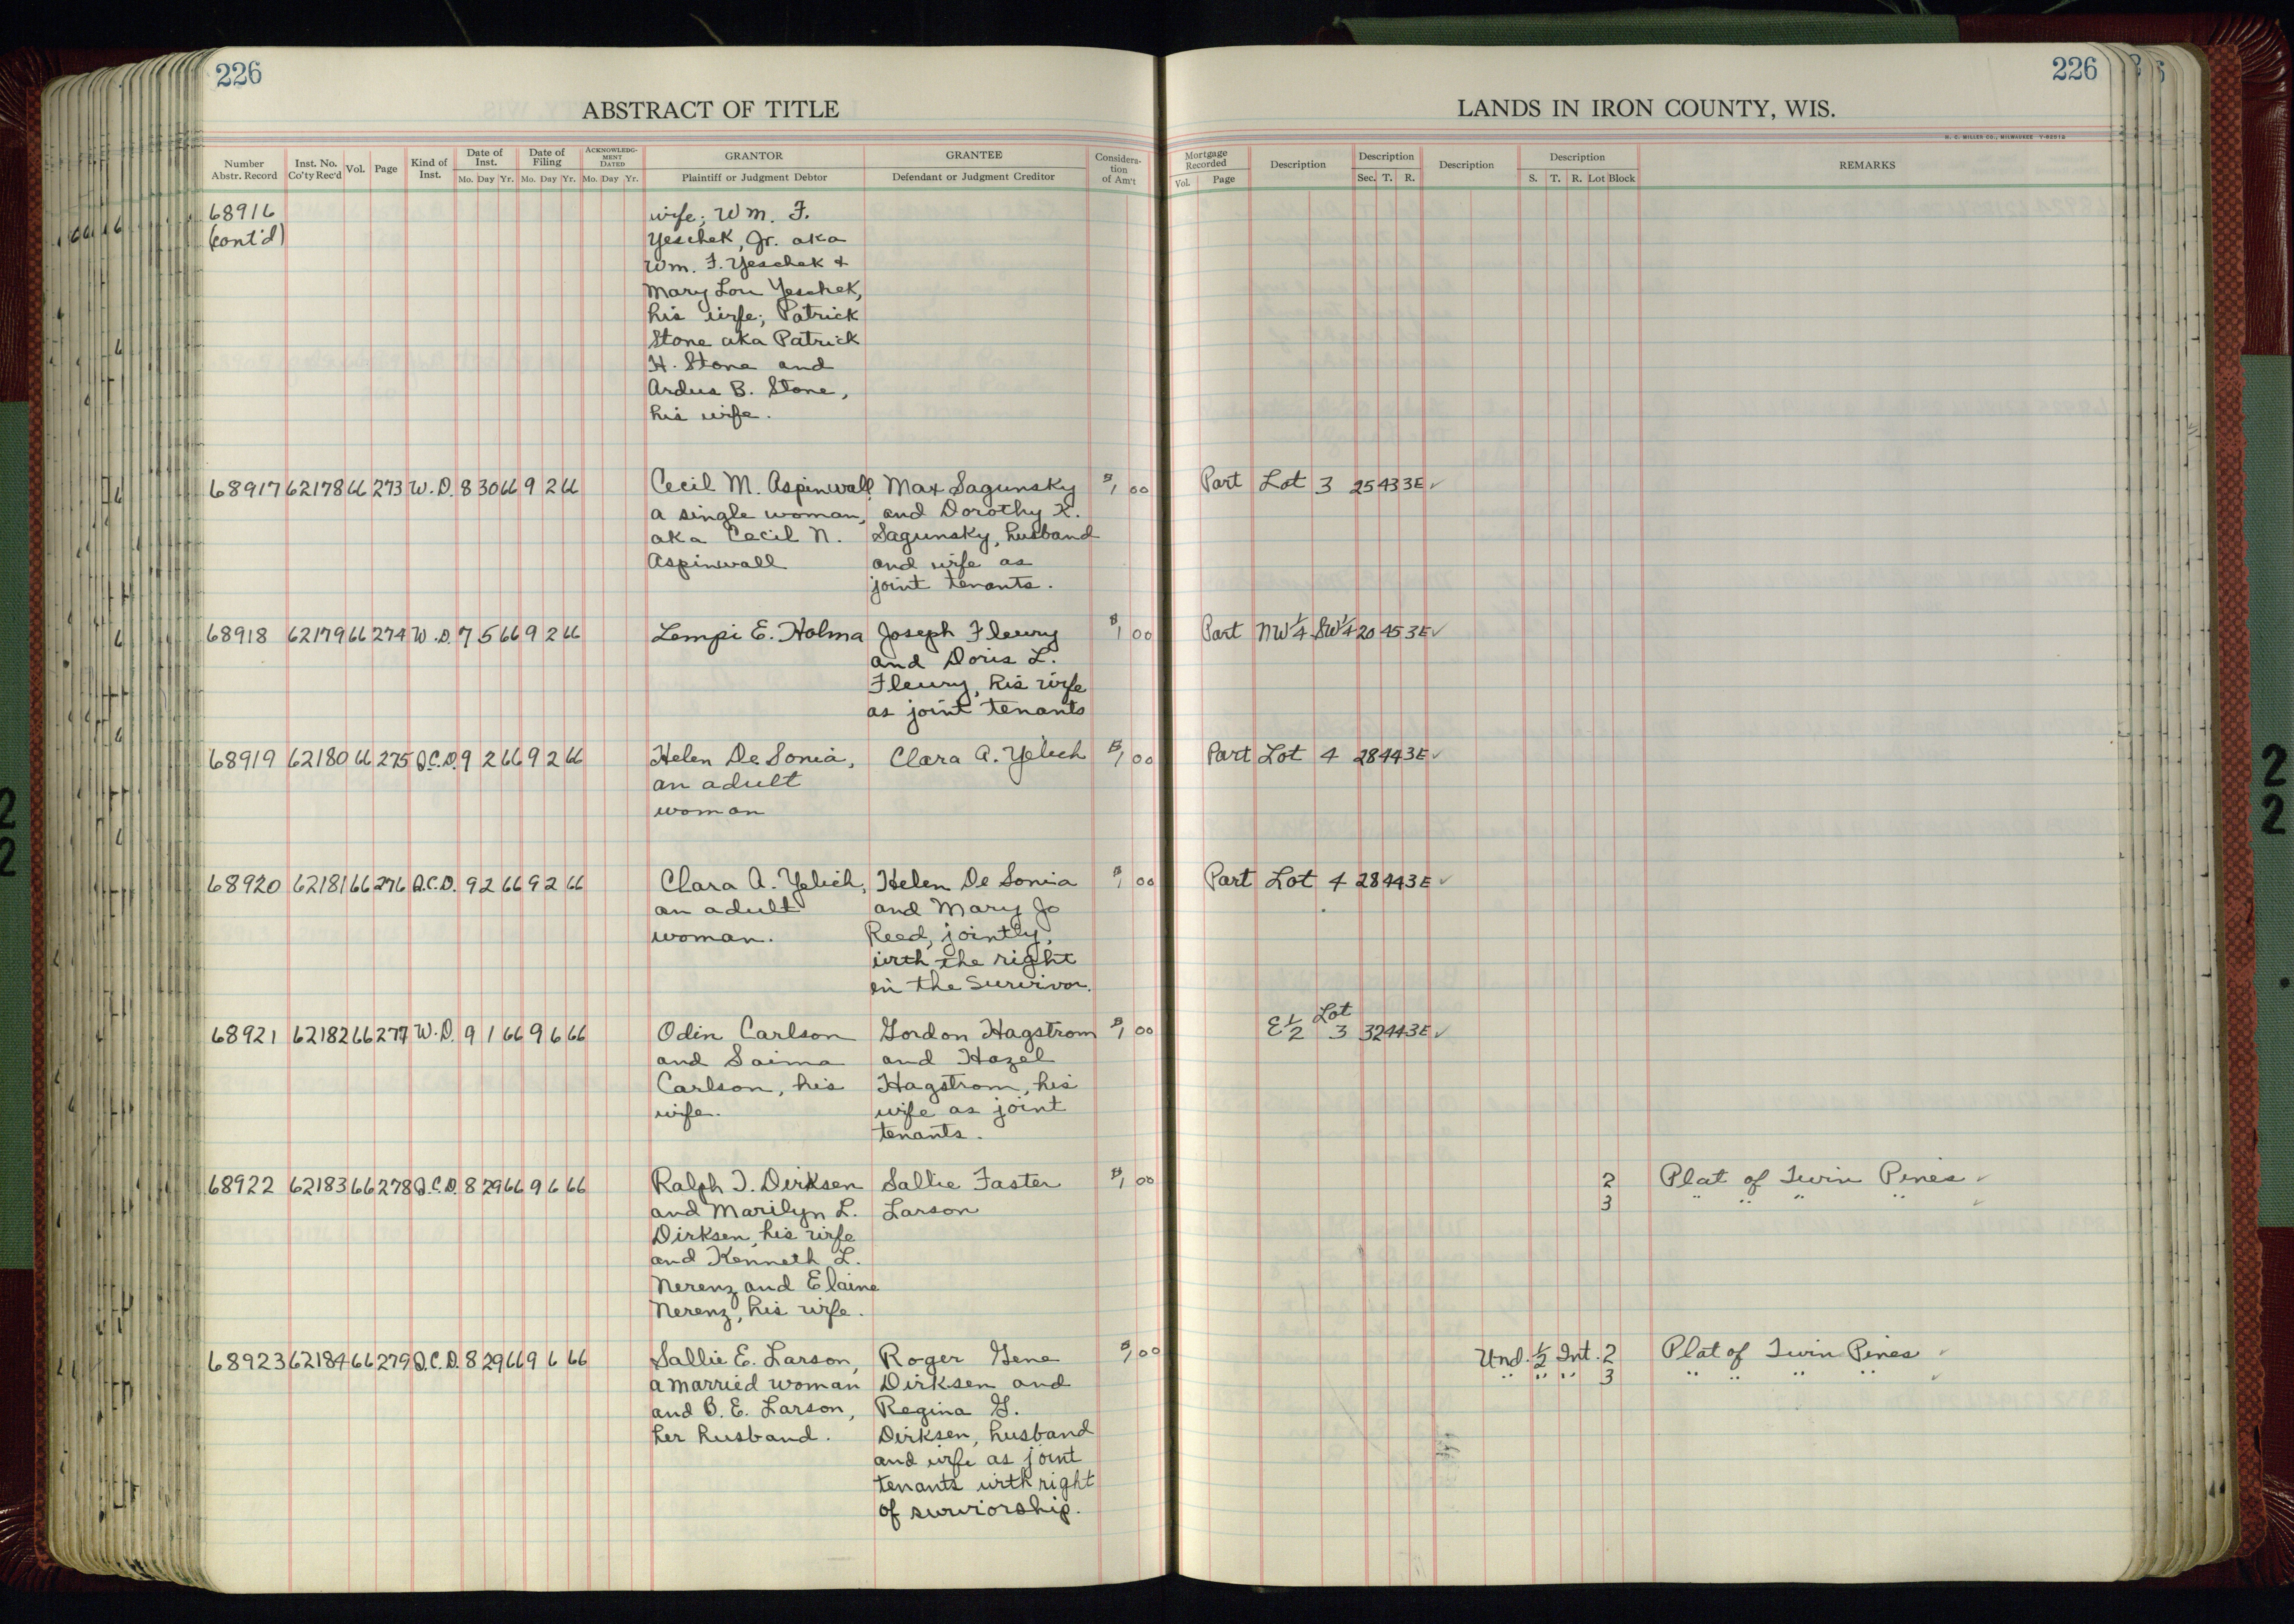 226
ABSTRACT OF TITLE
Number Abstr. Record Inst. No. Co'ty Rec'd Vol. Page Kind of Inst. Date of Inst. Mo. Day Yr. Date of Filing Mo. Day Yr. ACKNOWLEDGMENT DATED Mo. Day Yr. GRANTOR Plaintiff or Judgment Debtor GRANTEE Defendant or Judgment Creditor Consideration of Am't
68916 wife; Wm. F.
(cont'd) Yeschek, Jr. aka
Wm. F. Yeschek +
Mary Lou Yeschek,
his wife; Patrick
Stone aka Patrick
H. Stone and
Ardus B. Stone,
his wife.
68917 62178 66 273 W.D. 8 30 66 9 2 66 Cecil M. Aspinwall Max Sagunsky $1 00
a single woman, and Dorothy K.
aka Cecil N. Sagunsky, husband
Aspinwall and wife as
joint tenants.
68918 62179 66 274 W.D. 7 5 66 9 2 66 Lempi E. Holma Joseph Fleury $1 00
and Doris L.
Fleury, his wife
as joint tenants
68919 62180 66 275 Q.C.D. 9 2 66 9 2 66 Helen De Sonia, Clara A. Yelich $1 00
an adult
woman
68920 62181 66 276 Q.C.D. 9 2 66 9 2 66 Clara A. Yelich, Helen De Sonia $1 00
an adult and Mary Jo
woman. Reed, jointly,
with the right
in the Survivor.
68921 62182 66 277 W.D. 9 1 66 9 6 66 Odin Carlson Gordon Hagstrom $1 00
and Saima and Hazel
Carlson, his Hagstrom, his
wife. wife as joint
tenants.
68922 62183 66 278 Q.C.D. 8 29 66 9 6 66 Ralph J. Dirksen Sallie Faster $1 00
and Marilyn L. Larson
Dirksen, his wife
and Kenneth L.
Nerenz and Elaine
Nerenz, his wife.
68923 62184 66 279 Q.C.D. 8 29 66 9 6 66 Sallie E. Larson, Roger Gene $1 00
a married woman Dirksen and
and B. E. Larson, Regina G.
her husband. Dirksen, husband
and wife as joint
tenants with right
of surviorship.
226
LANDS IN IRON COUNTY, WIS.
H. C. MILLER CO., MILWAUKEE
Mortgage Recorded Vol. Page Description Description Sec. T. R. Description Description S. T. R. Lot Block REMARKS
Part Lot 3 25 43 3E ✓
Part NW 1/4 SW 1/4 20 45 3E ✓
Part Lot 4 28 44 3E ✓
Part Lot 4 28 44 3E ✓
E 1/2 Lot 3 32 44 3E ✓
2 Plat of Twin Pines ✓
3 " " " " ✓
Und. 1/2 Int. 2 Plat of Twin Pines ✓
" " " 3 " " " " ✓